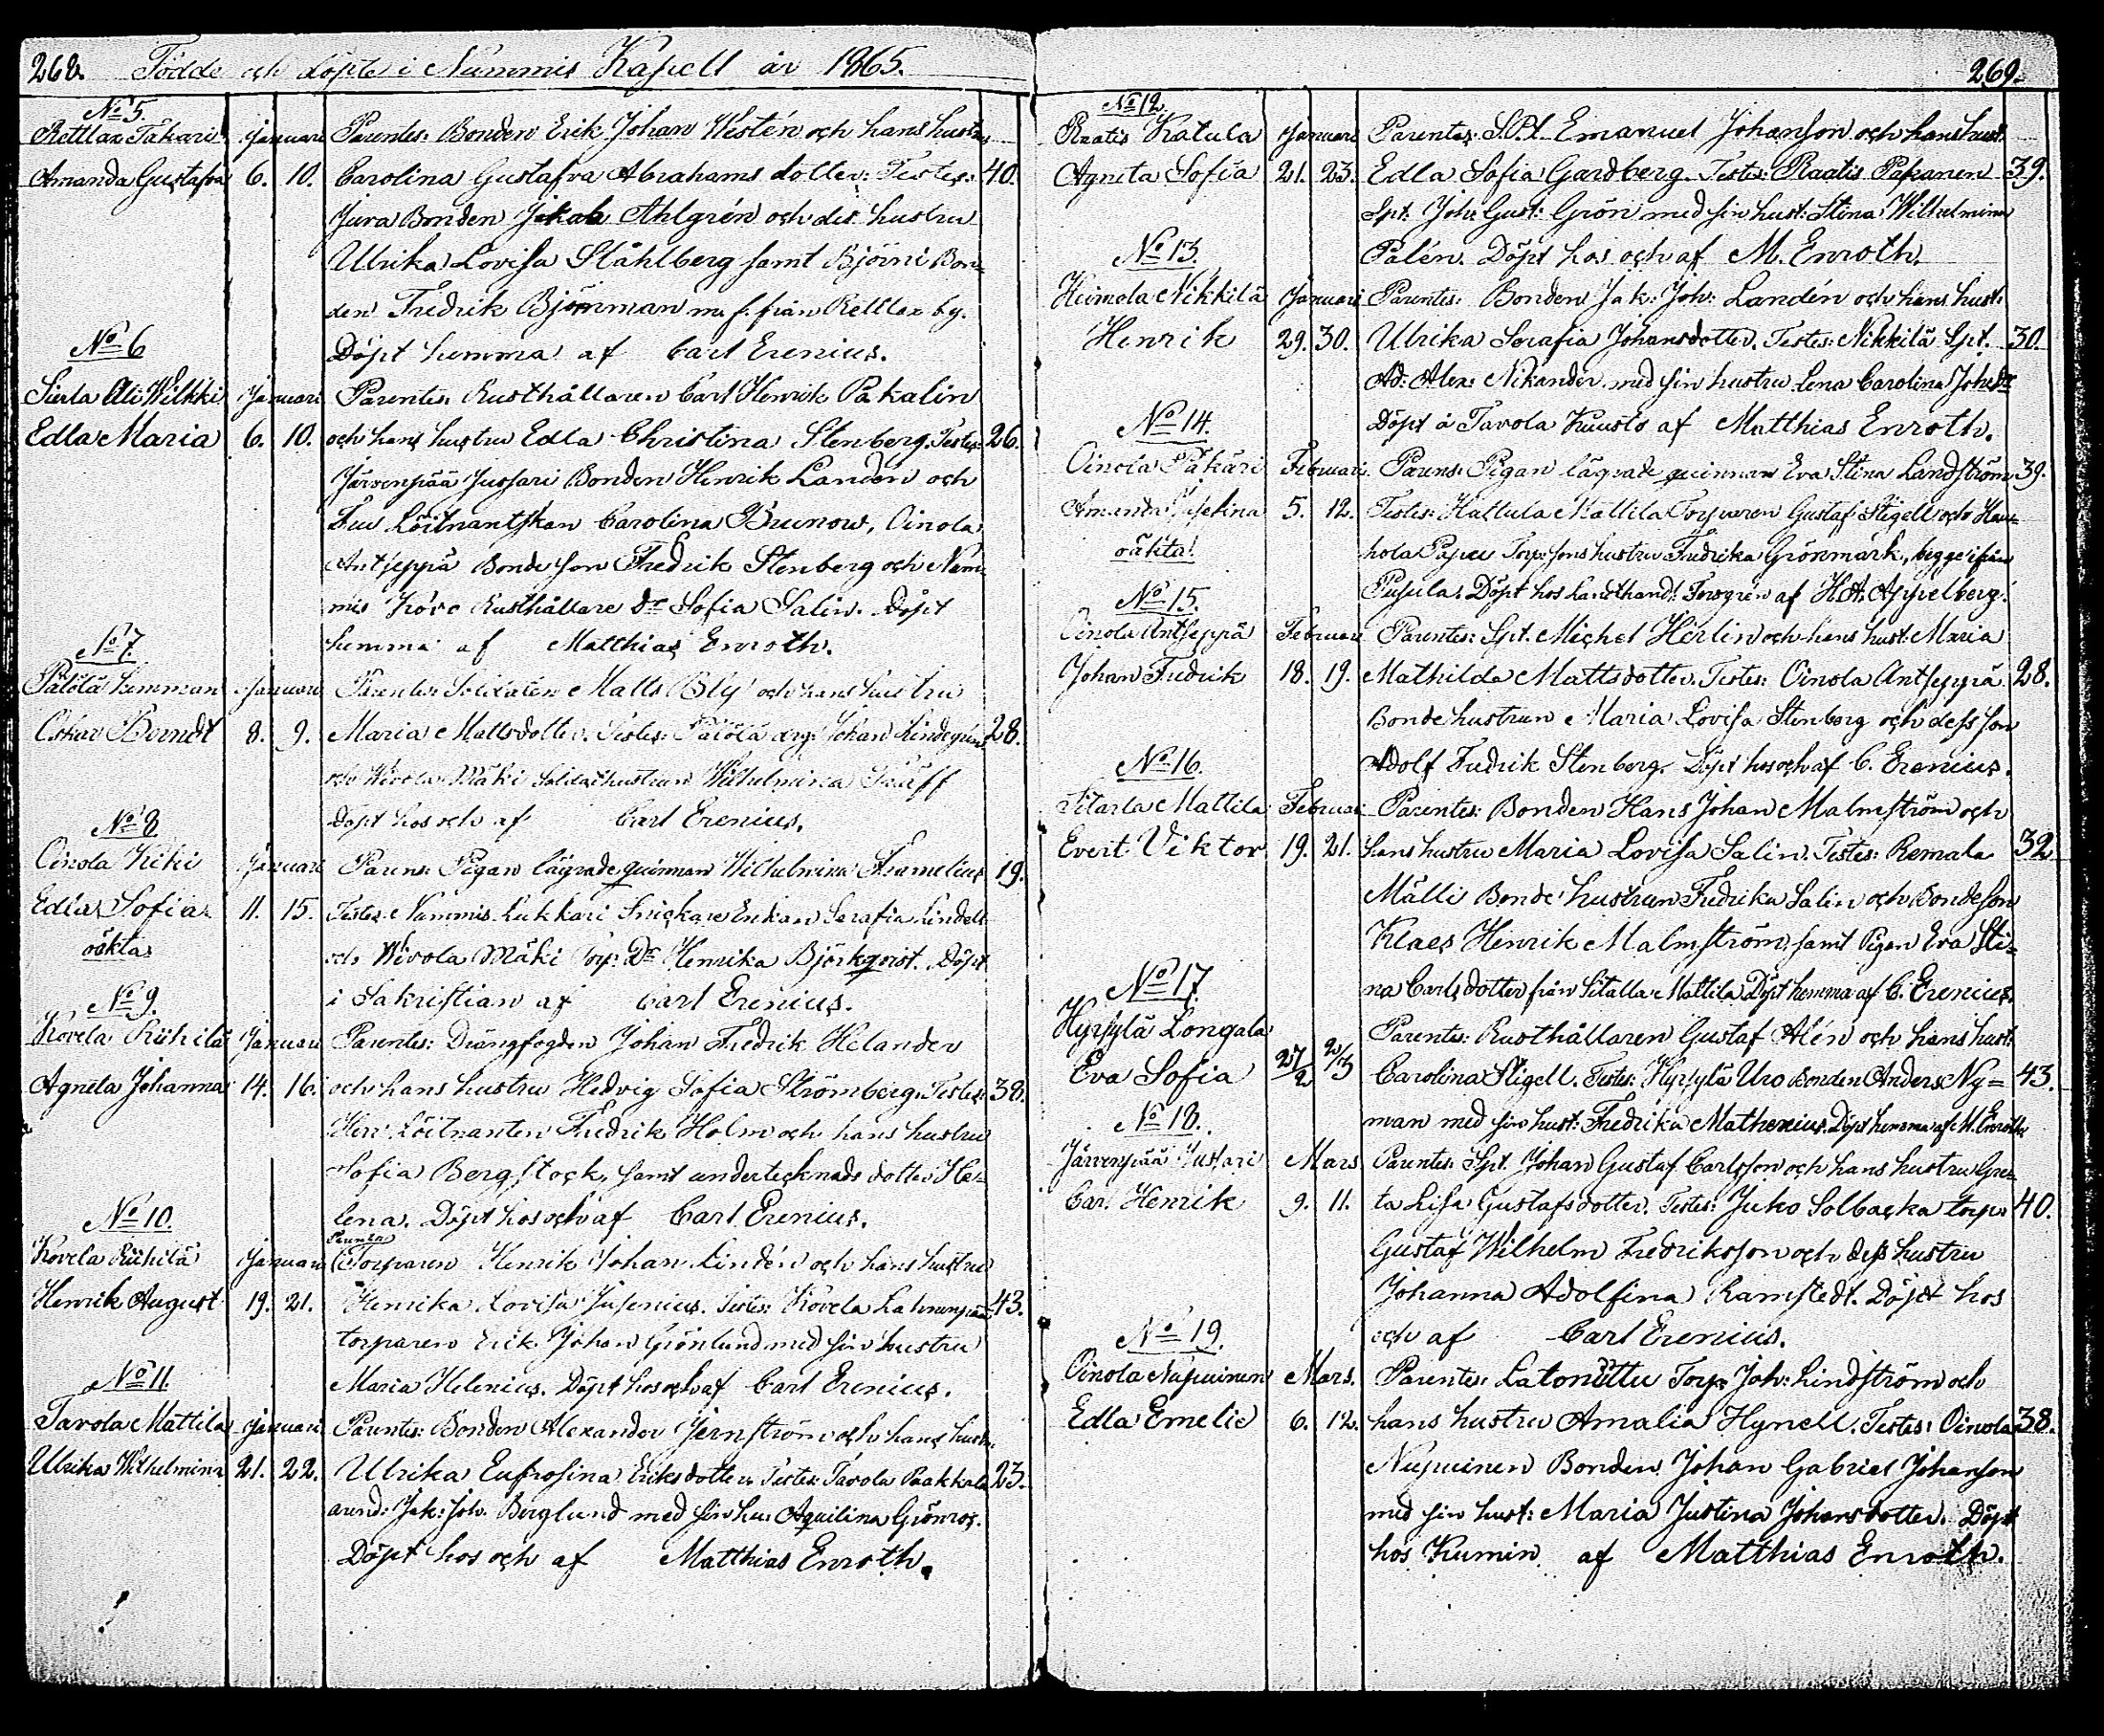 268. Födde och döpte i Nummis Kapell år 1865.
No 5.
Rettlax Takari Januari Parentes: Bonden Erik Johan Westén och hans hustru
Amanda Gustafva 6. 10. Carolina Gustafva Abrahams dotter. Testes: 40.
Jura Bonden Jakob Ahlgrén och des hustru
Ulrika Lovisa Ståhlberg samt Björni Bon-
den Fredrik Björnman m. f. från Rettlax by.
No 6
Döpt hemma af Carl Erenius.
Sierla Ali Wilkki Januari Parentes: Rusthållaren Carl Henrik Pakalin
Edla Maria 6. 10. och hans hustru Edla Christina Stenberg. Testes: 26.
Järvenpää Jussari Bonden Henrik Landén och
Fru Löitnantskan Carolina Brunow, Oinola
Antseppä Bonde son Fredrik Stenberg och Num-
mis Rusthållare dr Sofia Salin. Döpt
hemma af Matthias Enroth.
No 7.
Pälölä hemman Januari Parentes: Soldaten Matts Bly och hans hustru
Oskar Berndt 8. 9. Maria Mattsdotter. Testes: Pälölä Johan Lindegrén 28.
och Wivola Mäki Soldat hustrun Wilhelmina
Döpt hos och af Carl Erenius.
No 8.
Oinola Kiki Januari Parens: Pigan lägrade quinnan Wilhelmina Framelius 19.
Edla Sofia 11. 15. Testes: Nummis Lukkari Snickare Enkan Serafia Lindell
oäkta och Wivola Mäki Torp. Dr Henrika Björkqvist. Döpt
i Sakristian af Carl Erenius.
No 9.
Kovela Riihilä Januari Parentes: Drängfogden Johan Fredrik Helander
Agneta Johanna 14. 16. och hans hustru Hedvig Sofia Strömberg. Testes: 38.
Herr Löitnanten Fredrik Holm och hans hustru
Sofia Bergstock, samt undertecknads dotter He-
lena. Döpt hos och af Carl Erenius.
No 10.
Parentes
Kovela Riihilä Januari Torparen Henrik Johan Lindén och hans hustru
Henrik August 19. 21. Henrika Lovisa Jusenius. Testes: Kovela 43.
torparen Erik Johan Grönlund med sin hustru
Maria Helenius. Döpt hos och af Carl Erenius.
No 11.
Tavola Mattila Januari Parentes: Bonden Alexander Jernström och hans hustr.
Ulrika Wilhelmina 21. 22. Ulrika Eufrosina Eriksdotter. Testes: Tavola Paakkala 23.
arend: Jak: Joh. Berglund med sin hu: Aquilina Grönros.
Döpt hos och af Matthias Enroth.
269.
No 12.
Raatis Katula Januari Parentes: Spt. Emanuel Johanson och hans hust:
Agneta Sofia 21. 23. Edla Sofia Gardberg. Testes: Raatis Papanen 39.
Spt. Joh: Gust: Grön med sin hust: Stina Wilhelmina
Palén. Döpt hos och af M. Enroth.
No 13.
Heimola Nikkilä Januari Parentes: Bonden Jak: Joh: Landén och hans hust:
Henrik 29. 30. Ulrika Serafia Johansdotter. Testes: Nikkilä Spt. 30.
Ad: Alex: Nikander med sin hustru Lena Carolina Johsdr
Döpt å Tavola Kuusto af Matthias Enroth.
No 14.
Oinola Päkäri Februari Parens: Pigan lägrade quinnan Eva Stina Landström 39.
Amanda Josefina 5. 12. Testes: Hattula Mattila Torparen Gustaf Stigell och Hau-
oäkta hola Torp:sons hustru Fredrika Grönmark, begge ifrån
Pusula. Döpt hos Landthandl: Forsgrén af H. A. Appelberg.
No 15.
Oinola Antseppä Februari Parentes: Spt. Michel Herlin och hans hust: Maria
Johan Fredrik 18. 19. Mathilda Mattsdotter. Testes: Oinola Antseppä 28.
Bonde hustrun Maria Lovisa Stenberg och dess son
Adolf Fredrik Stenberg. Döpt hos och af C. Erenius.
No 16.
Sitarla Mattila Februari Parentes: Bonden Hans Johan Malmström och
Evert Viktor 19. 21. hans hustru Maria Lovisa Salin. Testes: Remala 32
Mälli Bonde hustrun Fredrika Salin och Bondeson
Klaes Henrik Malmström, samt Pigan Eva Sti-
na Carlsdotter från Sitalla Mattila Döpt hemma af C. Erenius.
No 17.
Hyrsylä Longala Parentes: Rusthållaren Gustaf Alén och hans hust:
Eva Sofia 27/2 2/3 Carolina Stigell. Testes: Hyrsylä Uro Bonden Anders Ny= 43.
man med sin hust: Fredrika Mathenius. Döpt hemma af M. Enroth
No 18.
Järvenpää Jussari Mars Parentes: Spt. Johan Gustaf Carlsson och hans hustru Gre-
Carl Henrik 9. 11. ta Lisa Gustafsdotter. Testes: Juko Solbacka torp: 40.
Gustaf Wilhelm Fredriksson och dess hustru
Johanna Adolfina Ramstedt. Döpt hos
och af Carl Erenius.
No 19.
Oinola Nupuinen Mars. Parentes: Latoniittu Torp: Joh: Lindström och
Edla Emelie 6. 12. hans hustru Amalia Hynell. Testes: Oinola 38.
Nupuinen Bonden Johan Gabriel Johanson
med sin hust: Maria Justina Johansdotter. Döpt
hos Kumin af Matthias Enroth.